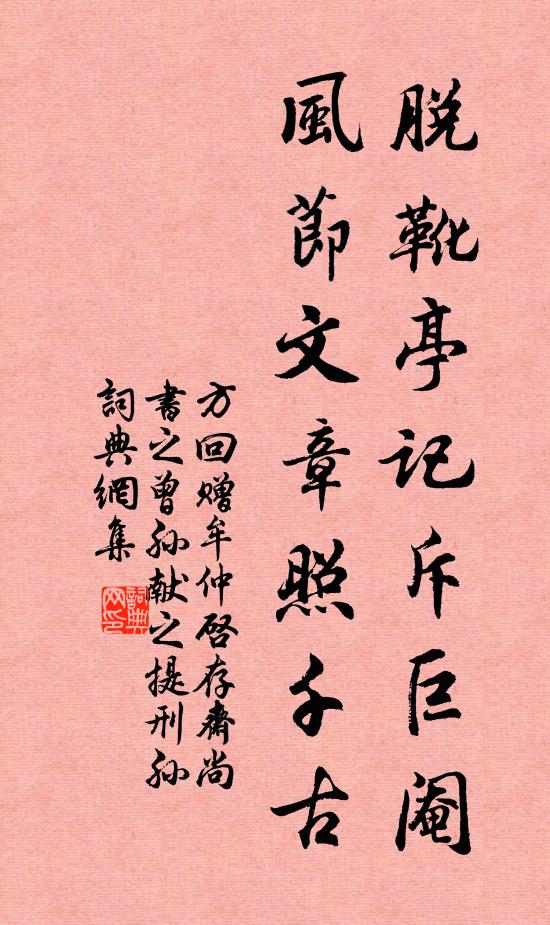 脱靴亭記斥巨阉
風節文章照千古
方回赠牟仲啓存齋尚
書之曾孙献之提刑孙
詞典網集
詞典网印